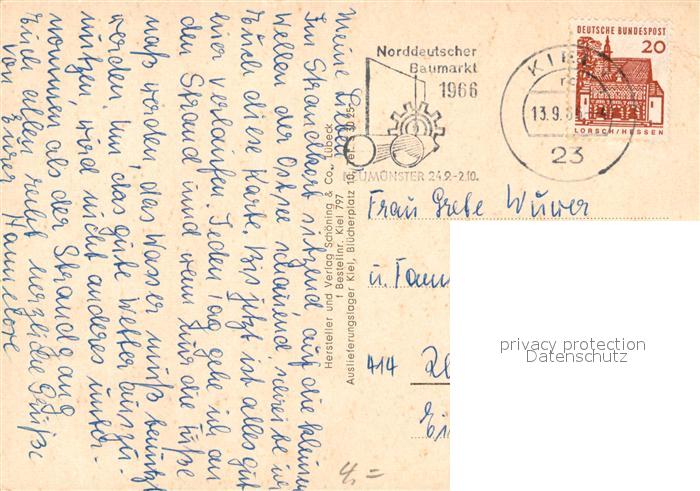 Meine Lieben!
Im Strandkorb sitzend auf die kleinen
Wellen der Ostsee schauend schreibe ich
Euch diese Karte. Bis jetzt ist alles gut
hier verlaufen. Jeden Tag gehe ich an
den Strand und wenn nur die Füße
naß werden, das Wasser muß benutzt
werden. Um das gute Wetter auszu-
nutzen, wird nichts anderes unter-
nommen als der Strandgang
Euch allen recht herzliche Grüße
von Eurer Hannelore
Hersteller und Verlag Schöning & Co., Lübeck
† Bestellnr. Kiel 797
Auslieferungslager Kiel, Blücherplatz 10, Tel.
Norddeutscher
Baumarkt
1966
NEUMÜNSTER 24.9.-2.10.
KIEL
13.9.
23
DEUTSCHE BUNDESPOST
20
LORSCH/HESSEN
Frau Grete Wuwer
u. Fam
414
4,=
privacy protection
Datenschutz